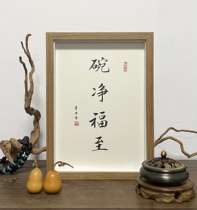 碗净福至